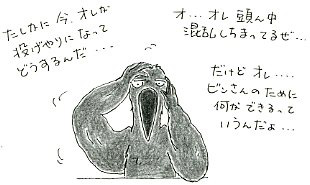 たしかに今、オレが
投げやりになって
どうするんだ・・・
オ…オレ頭ん中
混乱しちまってるぜ…
だけどオレ・・・・
ビンさんのために
何ができるって
いうんだよ…